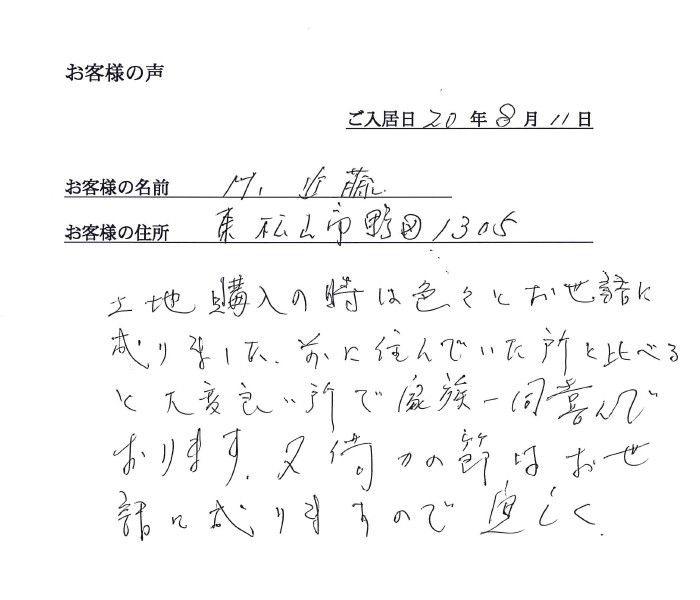 お客様の声
ご入居日 20 年 8 月 11 日
お客様の名前 M. 近藤
お客様の住所 東松山市野田1305
土地購入の時は色々とお世話に
成りました、前に住んでいた所と比べる
と大変良い所で家族一同喜んで
おります。又何かの節はお世
話に成りますので宜しく.